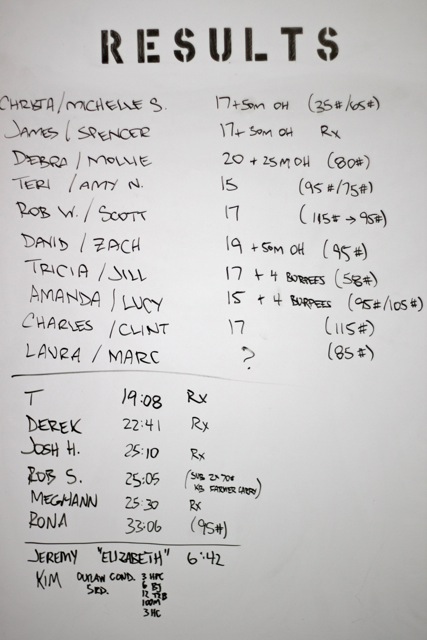 RESULTS
CHRISTA/MICHELLE S. 17+50M OH (35#/65#)
JAMES/SPENCER 17+50M OH Rx
DEBRA/MOLLIE 20+25M OH (80#)
TERI/AMY N. 15 (95#/75#)
ROB W./SCOTT 17 (115#→95#)
DAVID/ZACH 19+50M OH (95#)
TRICIA/JILL 17+4 BURPEES (58#)
AMANDA/LUCY 15+4 BURPEES (95#/105#)
CHARLES/CLINT 17 (115#)
LAURA/MARC ? (85#)
T 19:08 Rx
DEREK 22:41 Rx
JOSH H. 25:10 Rx
ROB S. 25:05 (SUB 2x70#
KB FARMER CARRY)
MEGMANN 25:30 Rx
RONA 33:06 (95#)
JEREMY "ELIZABETH" 6:42
KIM OUTLAW COND. 3 HPC
5RD. 6 BJ
12 TTB
100M
3 HC